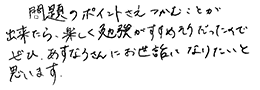 問題のポイントさえつかむことが
出来たら、楽しく勉強がすすめそうだったので
ぜひ、あすなろさんにお世話になりたいと
思います。